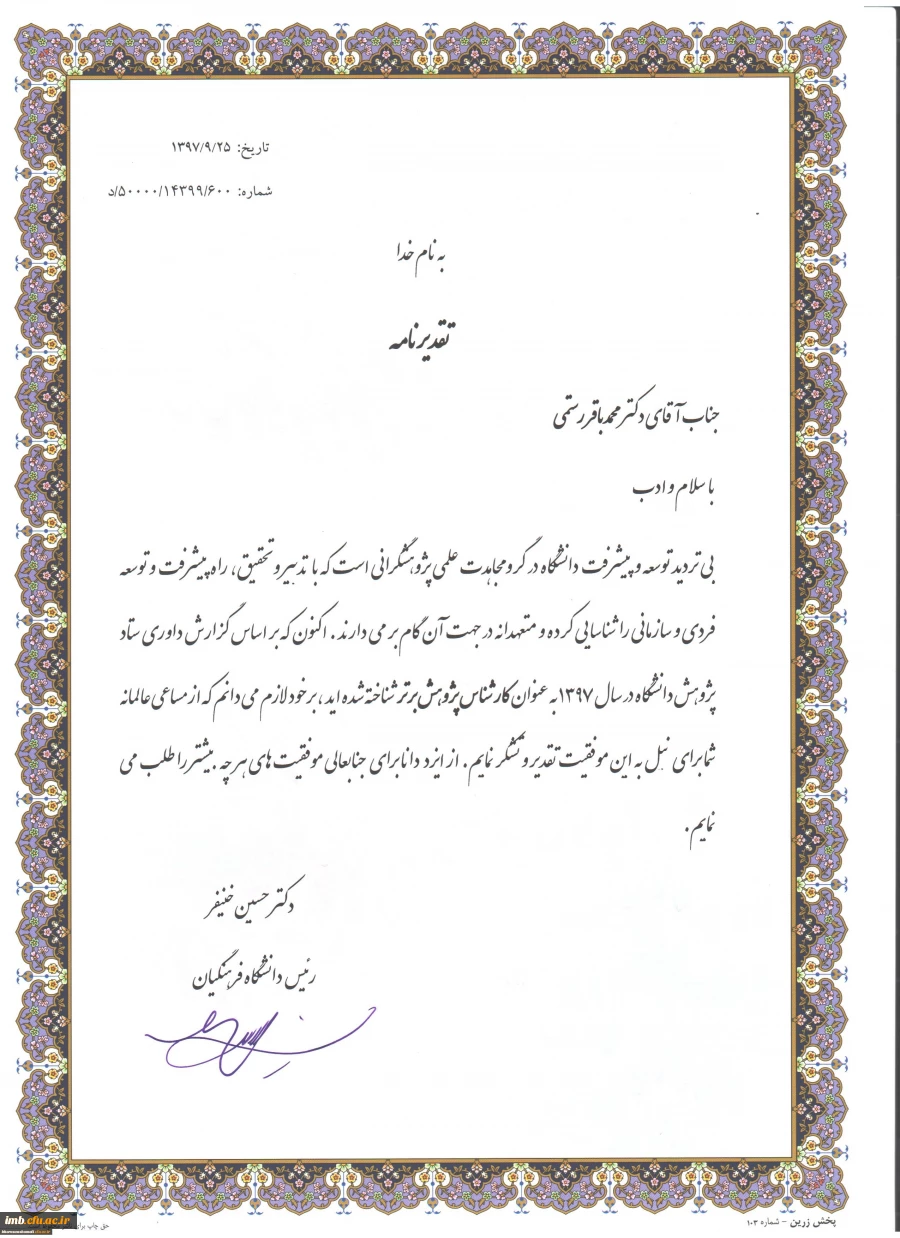 تاریخ: ۱۳۹۷/۹/۲۵
شماره: ۵۰۰۰۰/۱۴۳۹۹/۶۰۰/د
به نام خدا
تقدیرنامه
جناب آقای دکتر محمدباقر رستمی
با سلام و ادب
بی تردید توسعه و پیشرفت دانشگاه در گرو مجاهدت علمی پژوهشگرانی است که با تدبیر و تحقیق، راه پیشرفت و توسعه
فردی و سازمانی را شناسایی کرده و متعهدانه در جهت آن گام بر می دارند. اکنون که بر اساس گزارش داوری ستاد
پژوهش دانشگاه در سال ۱۳۹۷ به عنوان کارشناس پژوهش برتر شناخته شده اید، بر خود لازم می دانم که از مساعی عالمانه
شما برای نیل به این موفقیت تقدیر و تشکر نمایم. از ایزد دانا برای جنابعالی موفقیت های هر چه بیشتر را طلب می
نمایم.
دکتر حسین خنیفر
رئیس دانشگاه فرهنگیان
imb.cfu.ac.ir
حق چاپ برای
پخش زرین - شماره ۱۰۳